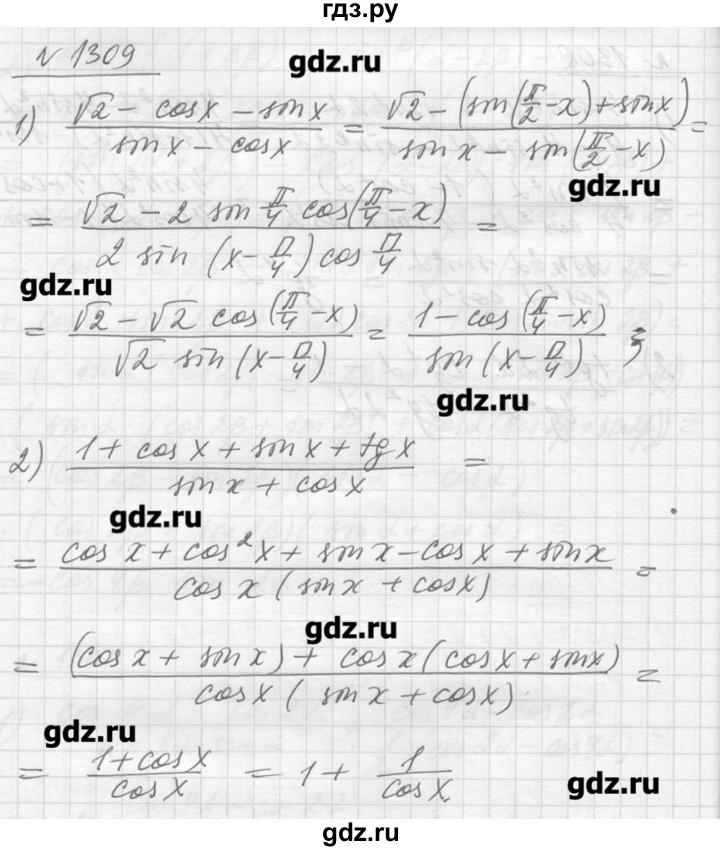 гдз.ру
№ 1309
gdz.ru
1) (√2 - cos x - sin x)/(sin x - cos x) = (√2 - (sin(π/2 - x) + sin x))/(sin x - sin(π/2 - x)) =
gdz.ru
= (√2 - 2 sin π/4 cos(π/4 - x))/(2 sin (x - π/4) cos π/4) =
gdz.ru
= (√2 - √2 cos (π/4 - x))/(√2 sin (x - π/4)) = (1 - cos (π/4 - x))/(sin (x - π/4)) ;
gdz.ru
2) (1 + cos x + sin x + tg x)/(sin x + cos x) =
gdz.ru
= (cos x + cos² x + sin x - cos x + sin x)/(cos x (sin x + cos x)) =
gdz.ru
= ((cos x + sin x) + cos x (cos x + sin x))/(cos x (sin x + cos x)) =
gdz.ru
= (1 + cos x)/(cos x) = 1 + 1/(cos x).
gdz.ru
gdz.ru